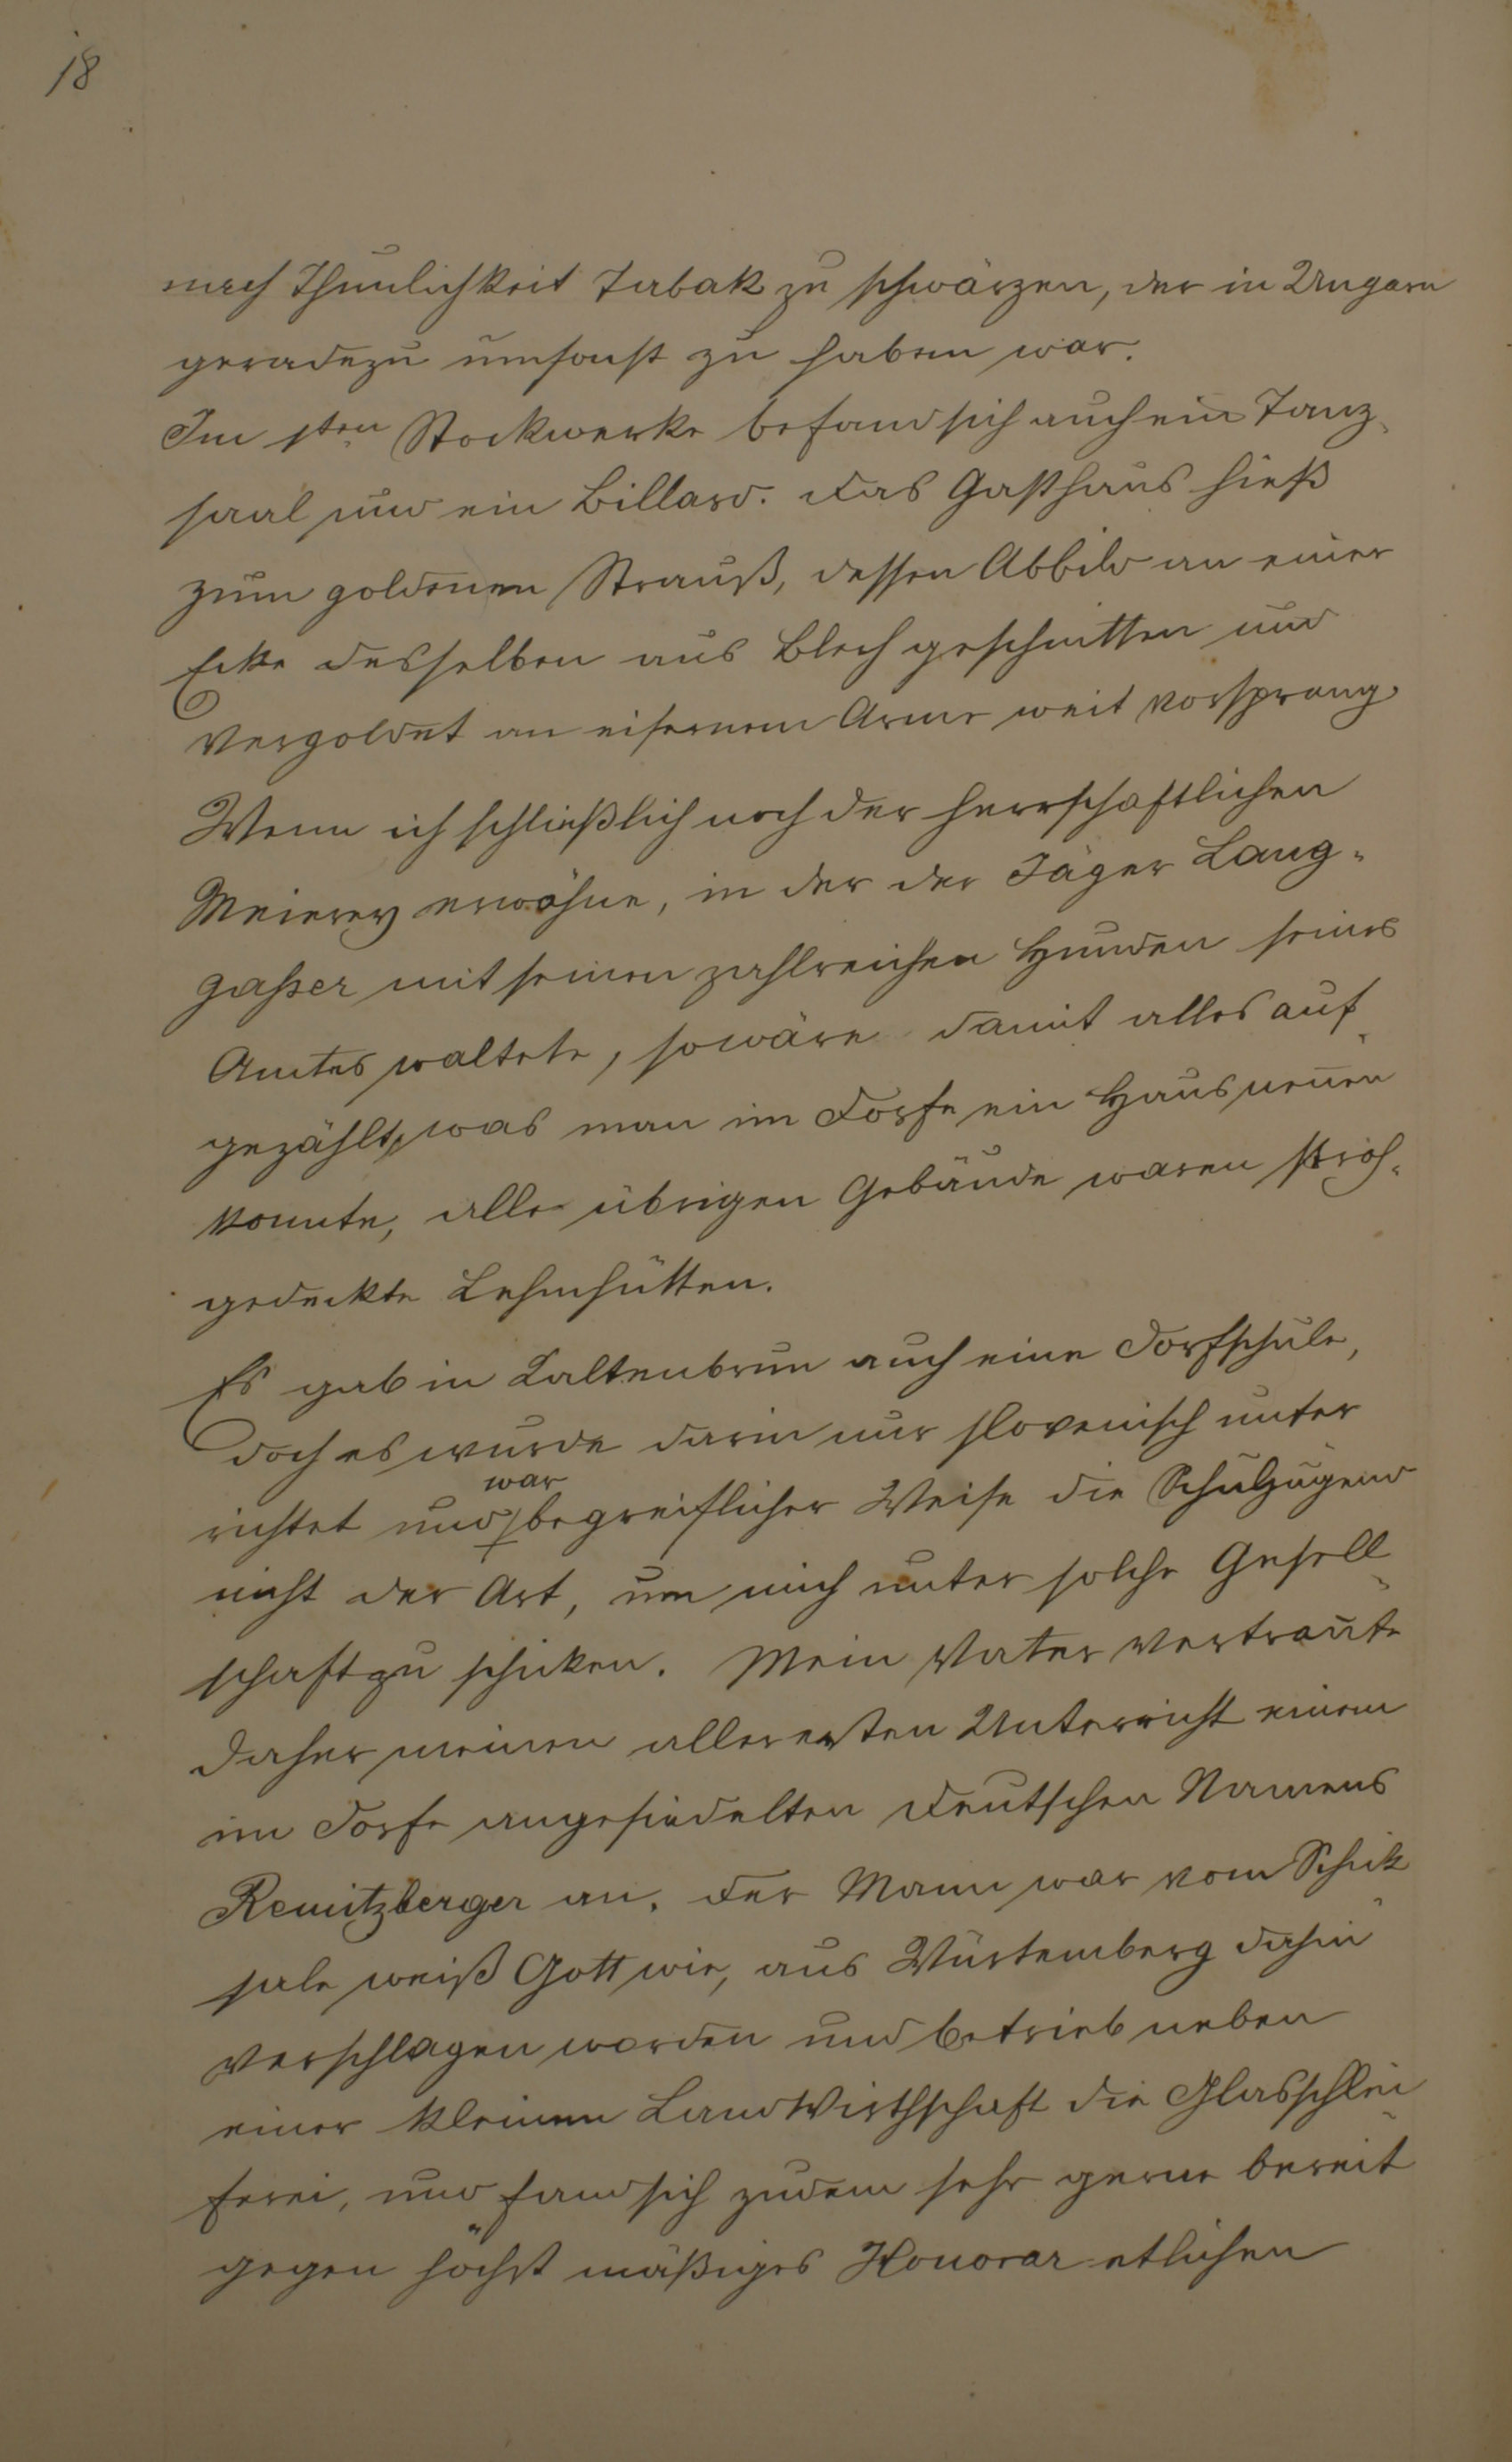 18
nach Thunlichkeit Tabak zu schwärzen, der in Ungarn
geradezu umsonst zu haben war.
Im 1ten Stockwerke befand sich auch ein Tanz-
saal und ein Billard. Das Gasthaus hieß
zum goldenen Strauß, dessen Abbild an einer
Ecke desselben aus Blech geschnitten und
vergoldet an eisernem Arme weit vorsprang.
Wenn ich schließlich noch der herrschaftlichen
Meierey erwähne, in der der Jäger Lang-
gaßer mit seinen zahlreichen Hunden seines
Amtes waltete, so wäre damit alles auf-
gezählt, was man im Dorfe ein Haus nenen
konnte, alle übrigen Gebäude waren stroh-
gedeckte Lehmhütten.
Es gab in Kaltenbrun auch eine Dorfschule,
doch es wurde darin nur slovenisch unter
richtet und war begreiflicher Weise die Schuljugend
nicht der Art, um mich unter solche Gesell-
schaft zu schicken. Mein Vater vertraute
daher meinen allerersten Unterricht einem
im Dorfe angesiedelten Deutschen Namens
Remitzberger an. Der Mann war vom Schick-
sale weiß Gott wie, aus Würtemberg dahin
verschlagen worden und betrieb neben
einer kleinen Landwirthschaft die Glasschlei-
ferei, und fand sich zudem sehr gerne bereit
gegen höchst mäßiges Honorar etlichen